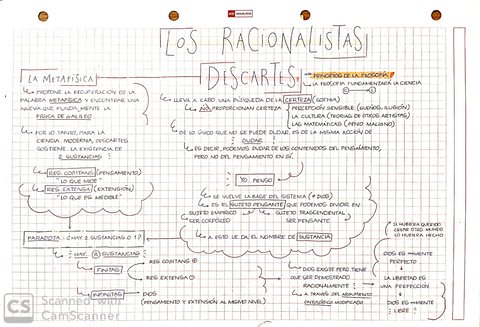 LOS RACIONALISTAS
DESCARTES
PRINCIPIOS DE LA FILOSOFÍA
LA FILOSOFÍA FUNDAMENTARÁ LA CIENCIA
LA METAFÍSICA
PROPONE LA RECUPERACIÓN DE LA
PALABRA METAFÍSICA Y ENCONTRAR UNA
NUEVA QUE FUNDAMENTE LA
FÍSICA DE GALILEO
POR LO TANTO, PARA LA
CIENCIA MODERNA, DESCARTES
SOSTIENE LA EXISTENCIA DE
2 SUSTANCIAS
RES COGITANS (PENSAMIENTO)
"LO QUE MIDE"
RES EXTENSA (EXTENSIÓN)
"LO QUE ES MEDIBLE"
LLEVA A CABO UNA BÚSQUEDA DE LA CERTEZA (SOPHIA)
NO PROPORCIONAN CERTEZA
PERCEPCIÓN SENSIBLE (SUEÑOS, ILUSIÓN)
LA CULTURA (TEORÍAS DE OTROS ARTISTAS)
LAS MATEMÁTICAS (GENIO MALIGNO)
DE LO ÚNICO QUE NO SE PUEDE DUDAR ES DE LA MISMA ACCIÓN DE
DUDAR
ES DECIR, PODEMOS DUDAR DE LOS CONTENIDOS DEL PENSAMIENTO,
PERO NO DEL PENSAMIENTO EN SÍ.
YO PIENSO
SE VUELVE LA BASE DEL SISTEMA (≠ DIOS)
ES EL SUJETO PENSANTE QUE PODEMOS DIVIDIR EN
SUJETO EMPÍRICO
SER CORPÓREO
SUJETO TRASCENDENTAL
SER PENSANTE
A ESTO LE DA EL NOMBRE DE SUSTANCIA
PARADOJA: ¿HAY 2 SUSTANCIAS O 1?
HAY 2 SUSTANCIAS
FINITAS
RES COGITANS
RES EXTENSA
INFINITAS
DIOS
(PENSAMIENTO Y EXTENSIÓN AL MISMO NIVEL)
DIOS EXISTE PERO TIENE
QUE SER DEMOSTRADO
RACIONALMENTE
A TRAVÉS DEL ARGUMENTO
ONTOLÓGICO MODIFICADO
SI HUBIERA QUERIDO
CREAR OTRO MUNDO
LO HUBIERA HECHO
DIOS ES
PERFECTO
LA LIBERTAD ES
UNA PERFECCIÓN
DIOS ES
LIBRE
CS
Scanned with
CamScanner